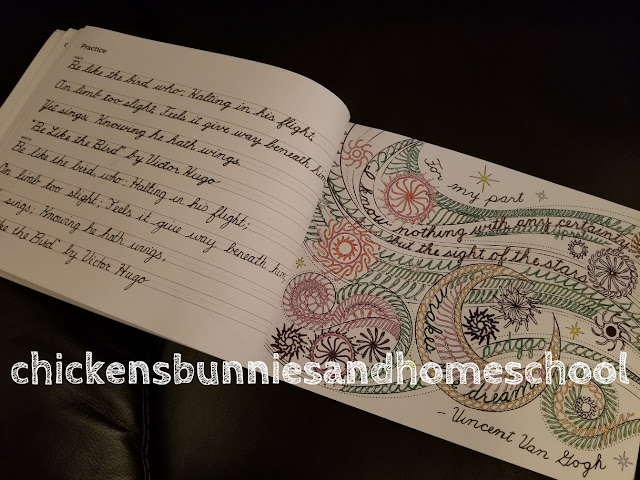 Practice
Be like the bird who; Halting in his flight
On limb too slight, Feels it give way beneath him
Yet sings; Knowing he hath wings
"Be Like the Bird" by Victor Hugo
Be like the bird who; Halting in his flight;
On limb too slight; Feels it give way beneath him
sings; Knowing he hath wings.
the Bird" by Victor Hugo
For my part
I know nothing with any certainty
but the sight of the stars
makes
dream
- Vincent Van Gogh
chickensbunniesandhomeschool